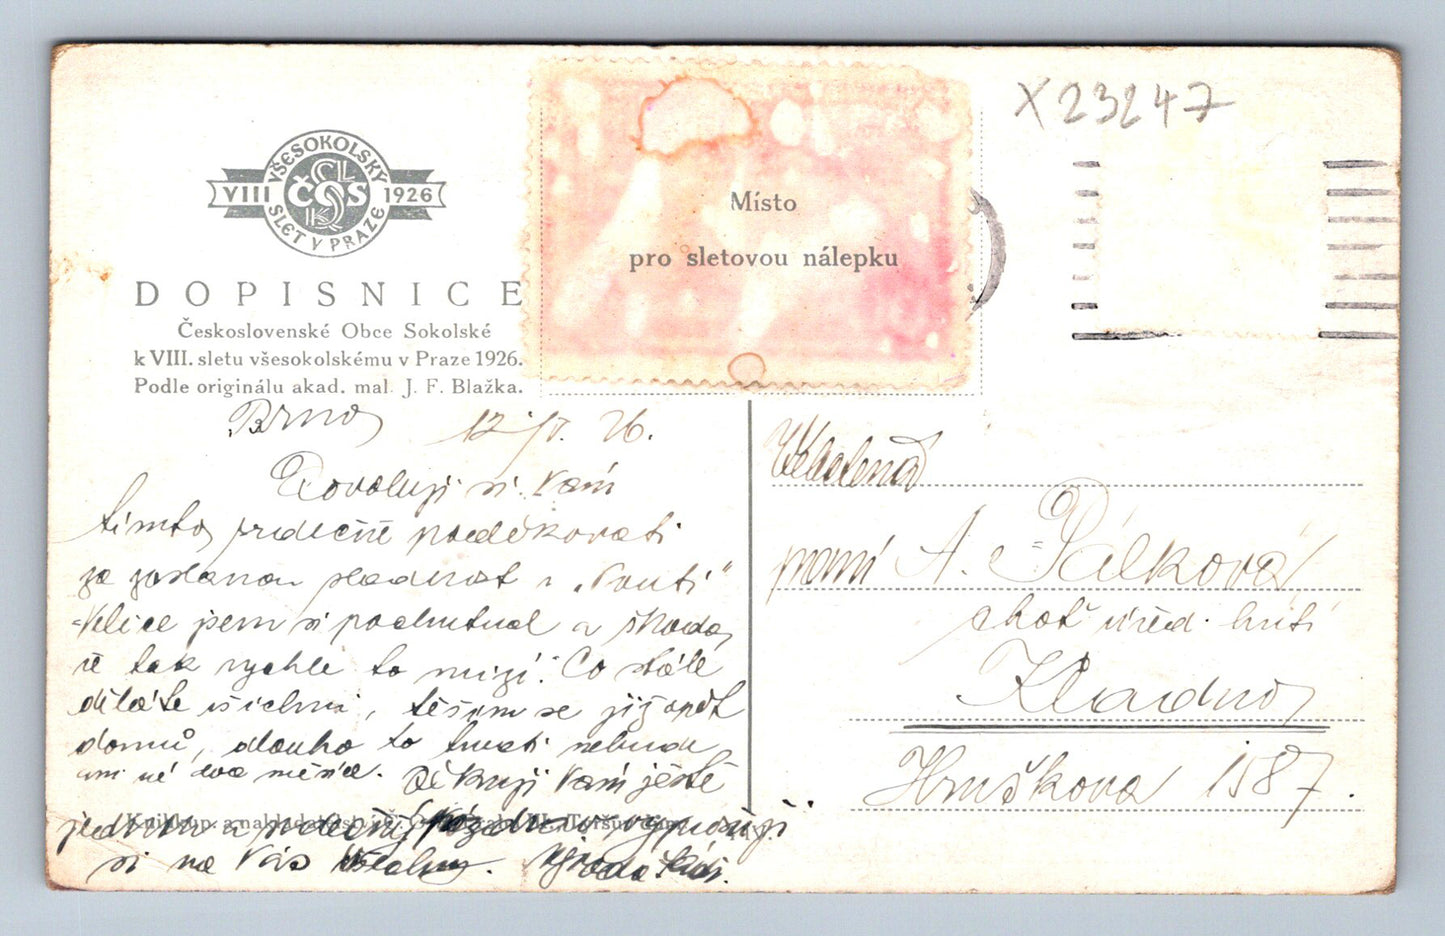 X 23247
VŠESOKOLSKÝ
VIII ČOS 1926
SLET V PRAZE
DOPISNICE
Československé Obce Sokolské
k VIII. sletu všesokolskému v Praze 1926.
Podle originálu akad. mal. J. F. Blažka.
Místo
pro sletovou nálepku
Brno 12/IV. 26.
Dovoluji si Vám
tímto srdečně poděkovati
za zaslanou sladkost
Velice jsem si pochutnal a škoda,
že tak rychle to mizí. Co stále
děláte všichni, těším se již opět
domů, dlouho to trvati nebude,
ani né dva měsíce. Děkuji Vám ještě
jednou a srdečný pozdrav
si na Vás
Velectěná
paní A. Pálková
choť úřed. huti
Kladno
Hruškova 1587.